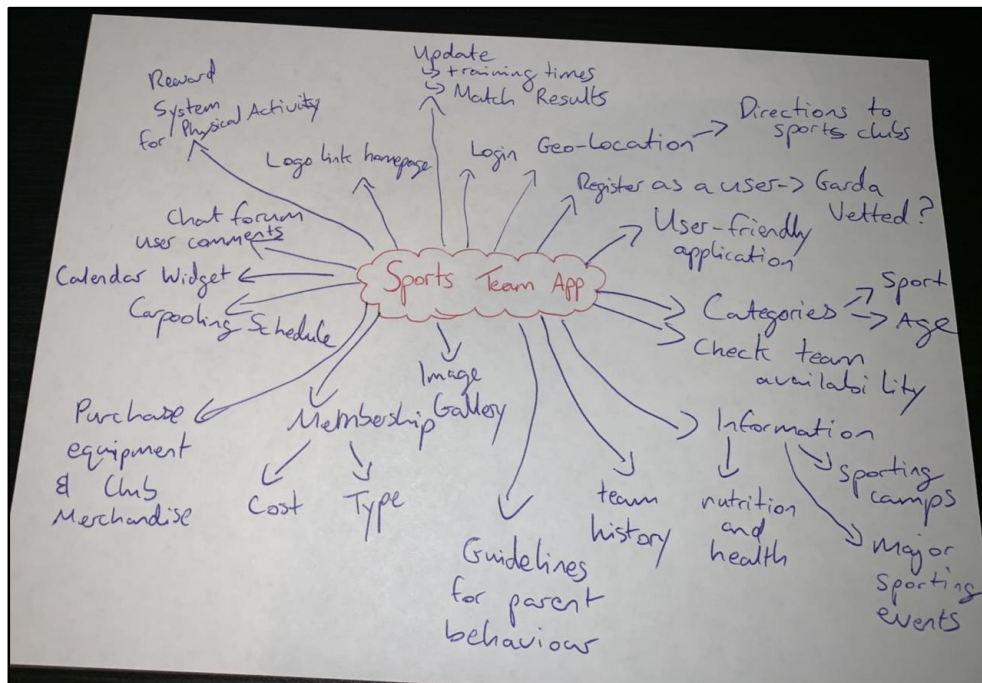 Reward
System
for Physical Activity
Update
↳ training times
↳ Match Results
Logo link homepage
Login
Geo-Location → Directions to
sports clubs
Register as a user → Garda
Vetted?
User-friendly
application
Chat forum
user comments
Calendar Widget
Carpooling Schedule
Sports Team App
Categories → Sport
→ Age
Check team
availability
Image
Gallery
Membership
Cost
Type
Purchase
equipment
& Club
Merchandise
Guidelines
for parent
behaviour
team
history
Information
nutrition
and
health
sporting
camps
major
sporting
events